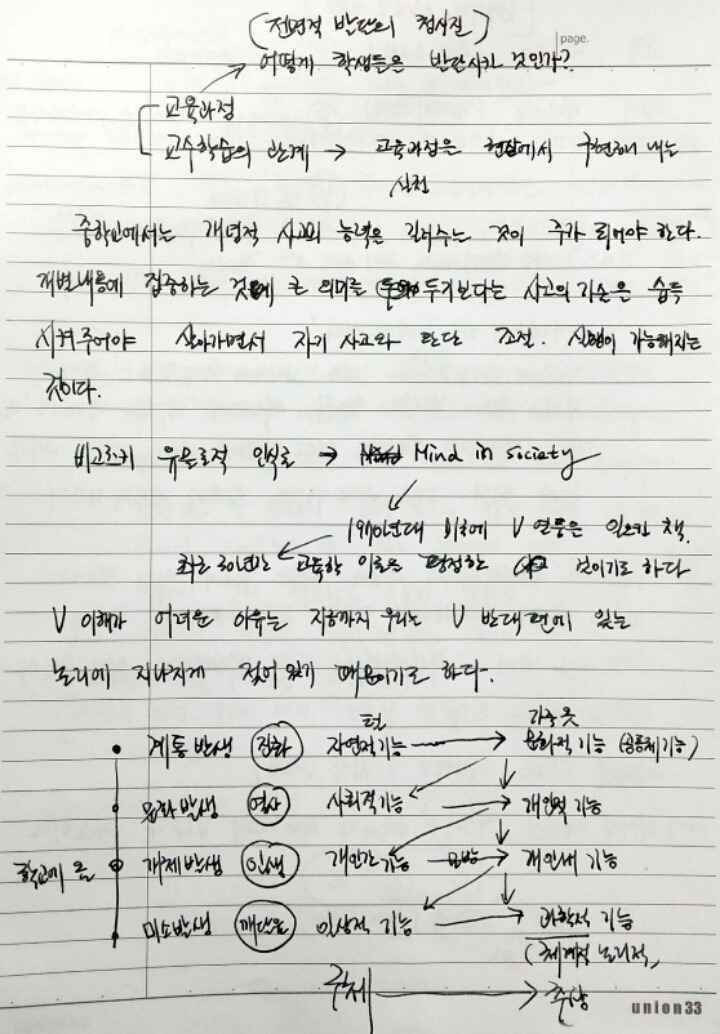 (전면적 발달의 청사진)
page.
어떻게 학생들을 발달시킬 것인가?
교육과정
교수학습의 관계 → 교육과정을 현장에서 구현해 내는
실천
중학교에서는 개념적 사고의 능력을 길러주는 것이 주가 되어야 한다.
개별내용에 집중하는 것에 큰 의미를 두기보다는 사고의 기술을 습득
시켜주어야 살아가면서 자기 사고와 판단 조절. 실행이 가능해지는
것이다.
비고츠키 유물론적 인식론 → Mind in society
1970년대 미국에 V 열풍을 일으킨 책.
최근 30년간 교육학 이론을 평정한 것이기도 하다
V 이해가 어려운 이유는 지금까지 우리는 V 반대편에 있는
논리에 지나치게 젖어 있기 때문이기도 하다.
털 가죽옷
계통발생 진화 자연적기능 → 문화적 기능 (공동체기능)
문화발생 역사 사회적기능 → 개인적 기능
학교에 옴 개체발생 인생 개인간 기능 모방 → 개인내 기능
미소발생 깨달음 일상적 기능 → 과학적 기능
(체계적 논리적,
구체 → 추상
union33